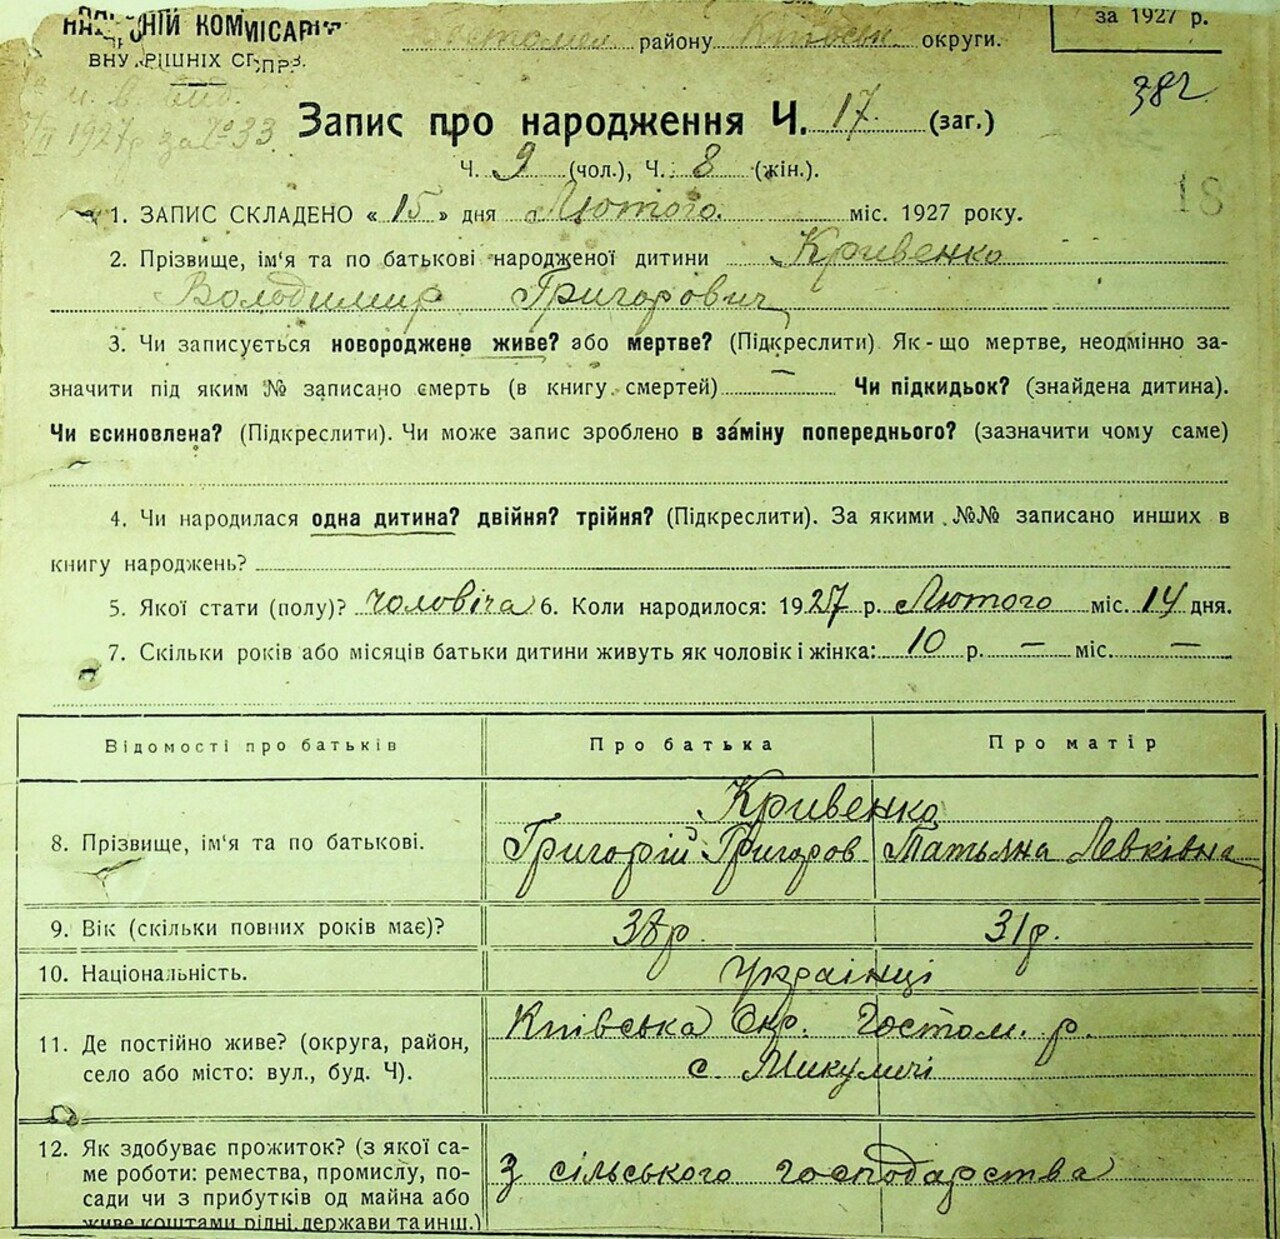 НАРОДНІЙ КОМІСАРІЯТ
ВНУТРІШНІХ СПРАВ.
Гостомел району Київськ. округи.
за 1927 р.
382
1927 р за № 33
Запис про народження Ч. 17. (заг.)
Ч. 9 (чол.), Ч. 8 (жін.).
18
1. ЗАПИС СКЛАДЕНО « 15 » дня Лютого. міс. 1927 року.
2. Прізвище, ім'я та по батькові народженої дитини Кривенко
Володимир Григорович
3. Чи записується новороджене живе? або мертве? (Підкреслити). Як-що мертве, неодмінно за-
значити під яким № записано смерть (в книгу смертей) — Чи підкидьок? (знайдена дитина).
Чи всиновлена? (Підкреслити). Чи може запис зроблено в заміну попереднього? (зазначити чому саме)
–
4. Чи народилася одна дитина? двійня? трійня? (Підкреслити). За якими №№ записано инших в
книгу народжень?
5. Якої стати (полу)? чоловіча 6. Коли народилося: 1927 р. Лютого міс. 14 дня.
7. Скільки років або місяців батьки дитини живуть як чоловік і жінка: 10 р. — міс. —
Відомості про батьків Про батька Про матір
Кривенко
8. Прізвище, ім'я та по батькові. Григорій Григоров Татьяна Левківна
9. Вік (скільки повних років має)? 38 р. 31 р.
10. Національність. Українці
11. Де постійно живе? (округа, район, Київська Окр. Гостом. р.
село або місто: вул., буд. Ч). с. Микуличі
12. Як здобуває прожиток? (з якої са-
ме роботи: ремества, промислу, по- З сільського господарства
сади чи з прибутків од майна або
живе коштами рідні, держави та инш.)